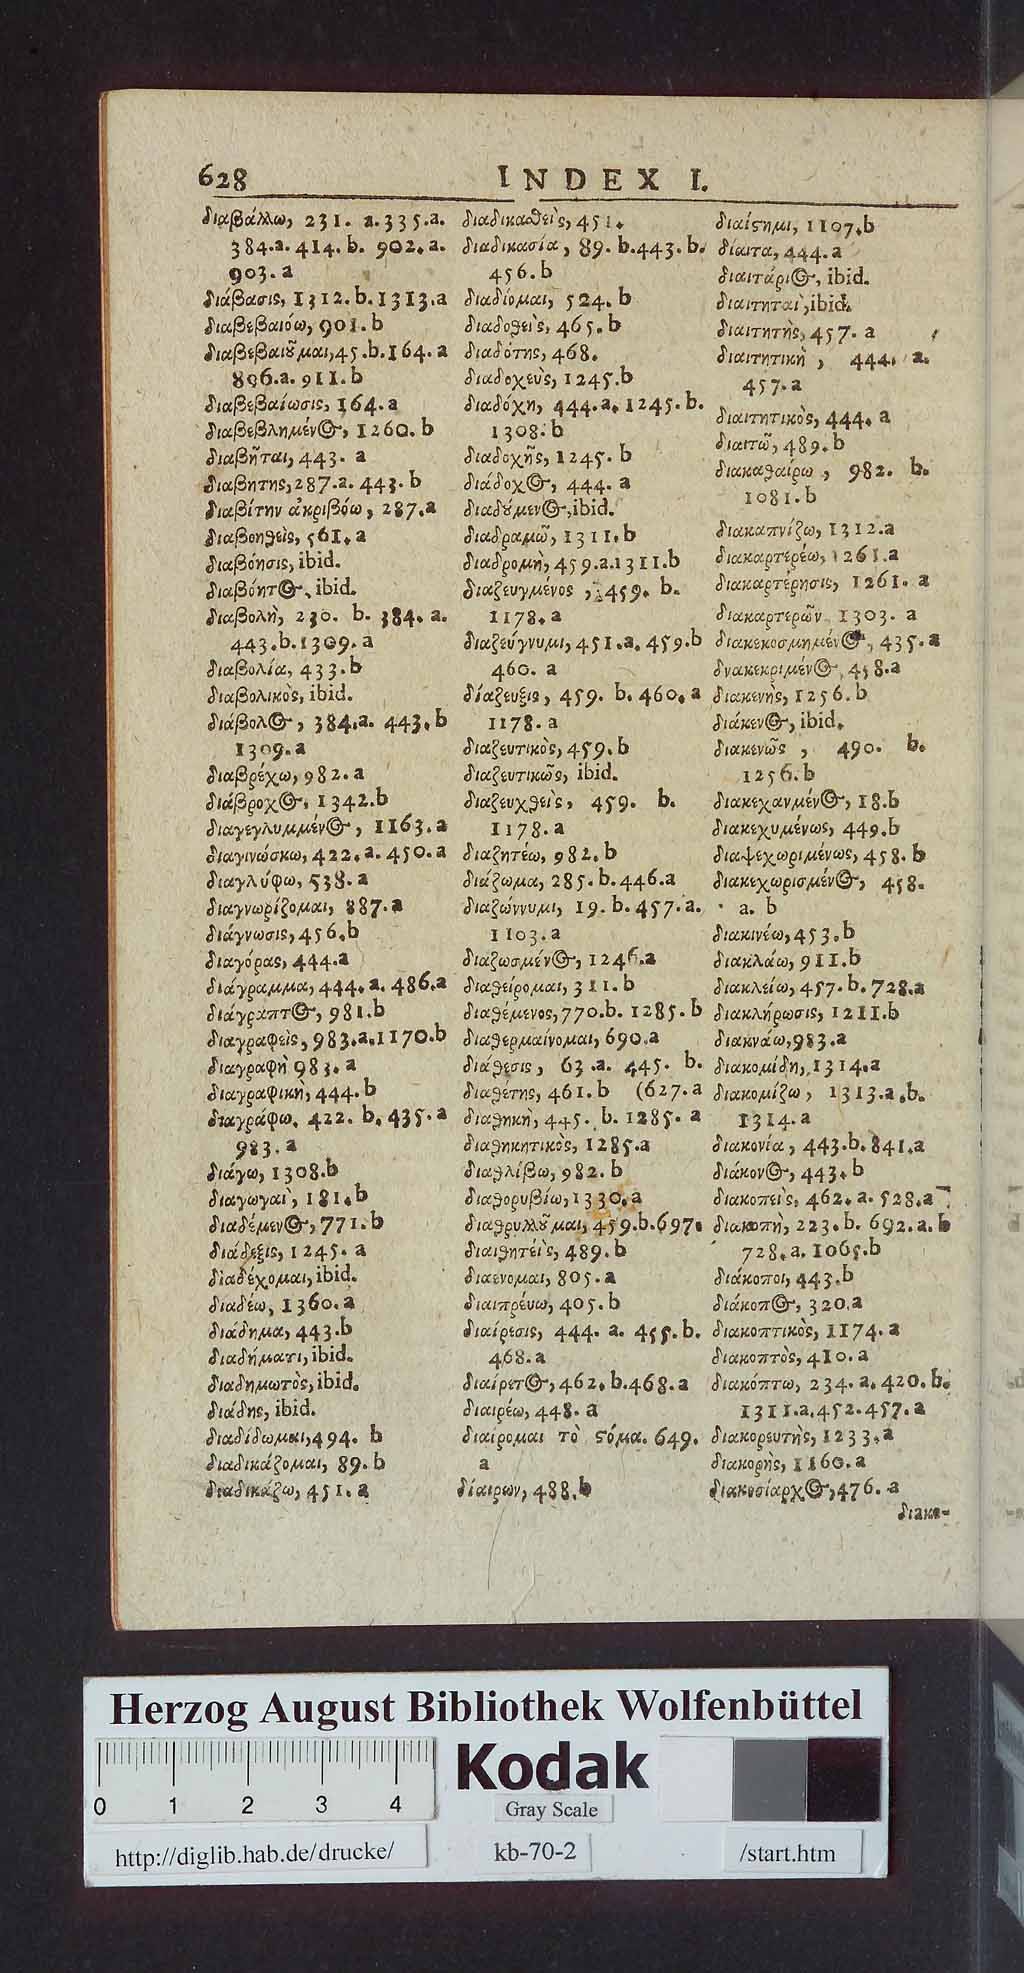 628 INDEX I.
διαβάλλω, 231. a. 335. a.
384. a. 414. b. 902. a.
903. a
διάβασις, 1312. b. 1313. a
διαβεβαιόω, 901. b
διαβεβαιοῦμαι, 45. b. 164. a
806. a. 911. b
διαβεβαίωσις, 164. a
διαβεβλημένος, 1260. b
διαβῆται, 443. a
διαβητης, 287. a. 443. b
διαβίτην ἀκριβόω, 287. a
διαβοηθεὶς, 561. a
διαβόησις, ibid.
διαβόητος, ibid.
διαβολὴ, 230. b. 384. a.
443. b. 1309. a
διαβολία, 433. b
διαβολικὸς, ibid.
διάβολος, 384. a. 443. b
1309. a
διαβρέχω, 982. a
διάβροχος, 1342. b
διαγεγλυμμένος, 1163. a
διαγινώσκω, 422. a. 450. a
διαγλύφω, 538. a
διαγνωρίζομαι, 887. a
διάγνωσις, 456. b
διαγόρας, 444. a
διάγραμμα, 444. a. 486. a
διάγραπτος, 981. b
διαγραφεὶς, 983. a. 1170. b
διαγραφὴ 983. a
διαγραφικὴ, 444. b
διαγράφω, 422. b. 435. a
983. a
διάγω, 1308. b
διαγωγαὶ, 181. b
διαδέμενος, 771. b
διάδεξις, 1245. a
διαδέχομαι, ibid.
διαδέω, 1360. a
διάδημα, 443. b
διαδήματι, ibid.
διαδημωτὸς, ibid.
διάδης, ibid.
διαδίδωμαι, 494. b
διαδικάζομαι, 89. b
διαδικάζω, 451. a
διαδικαθεὶς, 451.
διαδικασία, 89. b. 443. b.
456. b
διαδίομαι, 524. b
διαδοθεὶς, 465. b
διαδότης, 468.
διαδοχεὺς, 1245. b
διαδόχη, 444. a. 1245. b.
1308. b
διαδοχῆς, 1245. b
διάδοχος, 444. a
διαδύμενος, ibid.
διαδραμῶ, 1311. b
διαδρομὴ, 459. a. 1311. b
διαζευγμένος, 459. b.
1178. a
διαζεύγνυμι, 451. a. 459. b
460. a
δίαζευξις, 459. b. 460. a
1178. a
διαζευτικὸς, 459. b
διαζευτικῶς, ibid.
διαζευχθεὶς, 459. b.
1178. a
διαζητέω, 982. b
διάζωμα, 285. b. 446. a
διαζώννυμι, 19. b. 457. a.
1103. a
διαζωσμένος, 1246. a
διαθείρομαι, 311. b
διαθέμενος, 770. b. 1285. b
διαθερμαίνομαι, 690. a
διάθεσις, 63. a. 445. b.
διαθέτης, 461. b (627. a
διαθηκὴ, 445. b. 1285. a
διαθηκητικὸς, 1285. a
διαθλίβω, 982. b
διαθορυβίω, 1330. a
διαθρυλλοῦμαι, 459. b. 697.
διαιθητέὶς, 489. b
διαενομαι, 805. a
διαιπρέυω, 405. b
διαίρεσις, 444. a. 455. b.
468. a
διαίρετος, 462. b. 468. a
διαιρέω, 448. a
διαίρομαι τὸ ϛόμα. 649.
a
δίαιρων, 488. b
διαίϛημι, 1107. b
δίαιτα, 444. a
διαιτάριος, ibid.
διαιτηταὶ, ibid.
διαιτητὴς, 457. a
διαιτητικὴ, 444. a.
457. a
διαιτητικὸς, 444. a
διαιτῶ, 489. b
διακαθαίρω, 982. b.
1081. b
διακαπνίζω, 1312. a
διακαρτερέω, 1261. a
διακαρτέρησις, 1261. a
διακαρτερῶν 1303. a
διακεκοσμημένος, 435. a
δνακεκριμένος, 458. a
διακενὴς, 1256. b
διάκενος, ibid.
διακενῶς, 490. b.
1256. b
διακεχανμένος, 18. b
διακεχυμένως, 449. b
διαψεχωριμένως, 458. b
διακεχωρισμένος, 458.
a. b
διακινέω, 453. b
διακλάω, 911. b
διακλείω, 457. b. 728. a
διακλήρωσις, 1211. b
διακνάω, 983. a
διακομίδη, 1314. a
διακομίζω, 1313. a. b.
1314. a
διακονία, 443. b. 841. a
διάκονος, 443. b
διακοπεὶς, 462. a. 528. a
διακοπὴ, 223. b. 692. a. b
728. a. 1065. b
διάκοποι, 443. b
διάκοπος, 320. a
διακοπτικὸς, 1174. a
διακοπτὸς, 410. a
διακόπτω, 234. a. 420. b.
1311. a. 452. 457. a
διακορευτὴς, 1233. a
διακορὴς, 1160. a
διακοσίαρχος, 476. a
διακο-
Herzog August Bibliothek Wolfenbüttel
0 1 2 3 4
Kodak
Gray Scale
http://diglib.hab.de/drucke/ kb-70-2 /start.htm